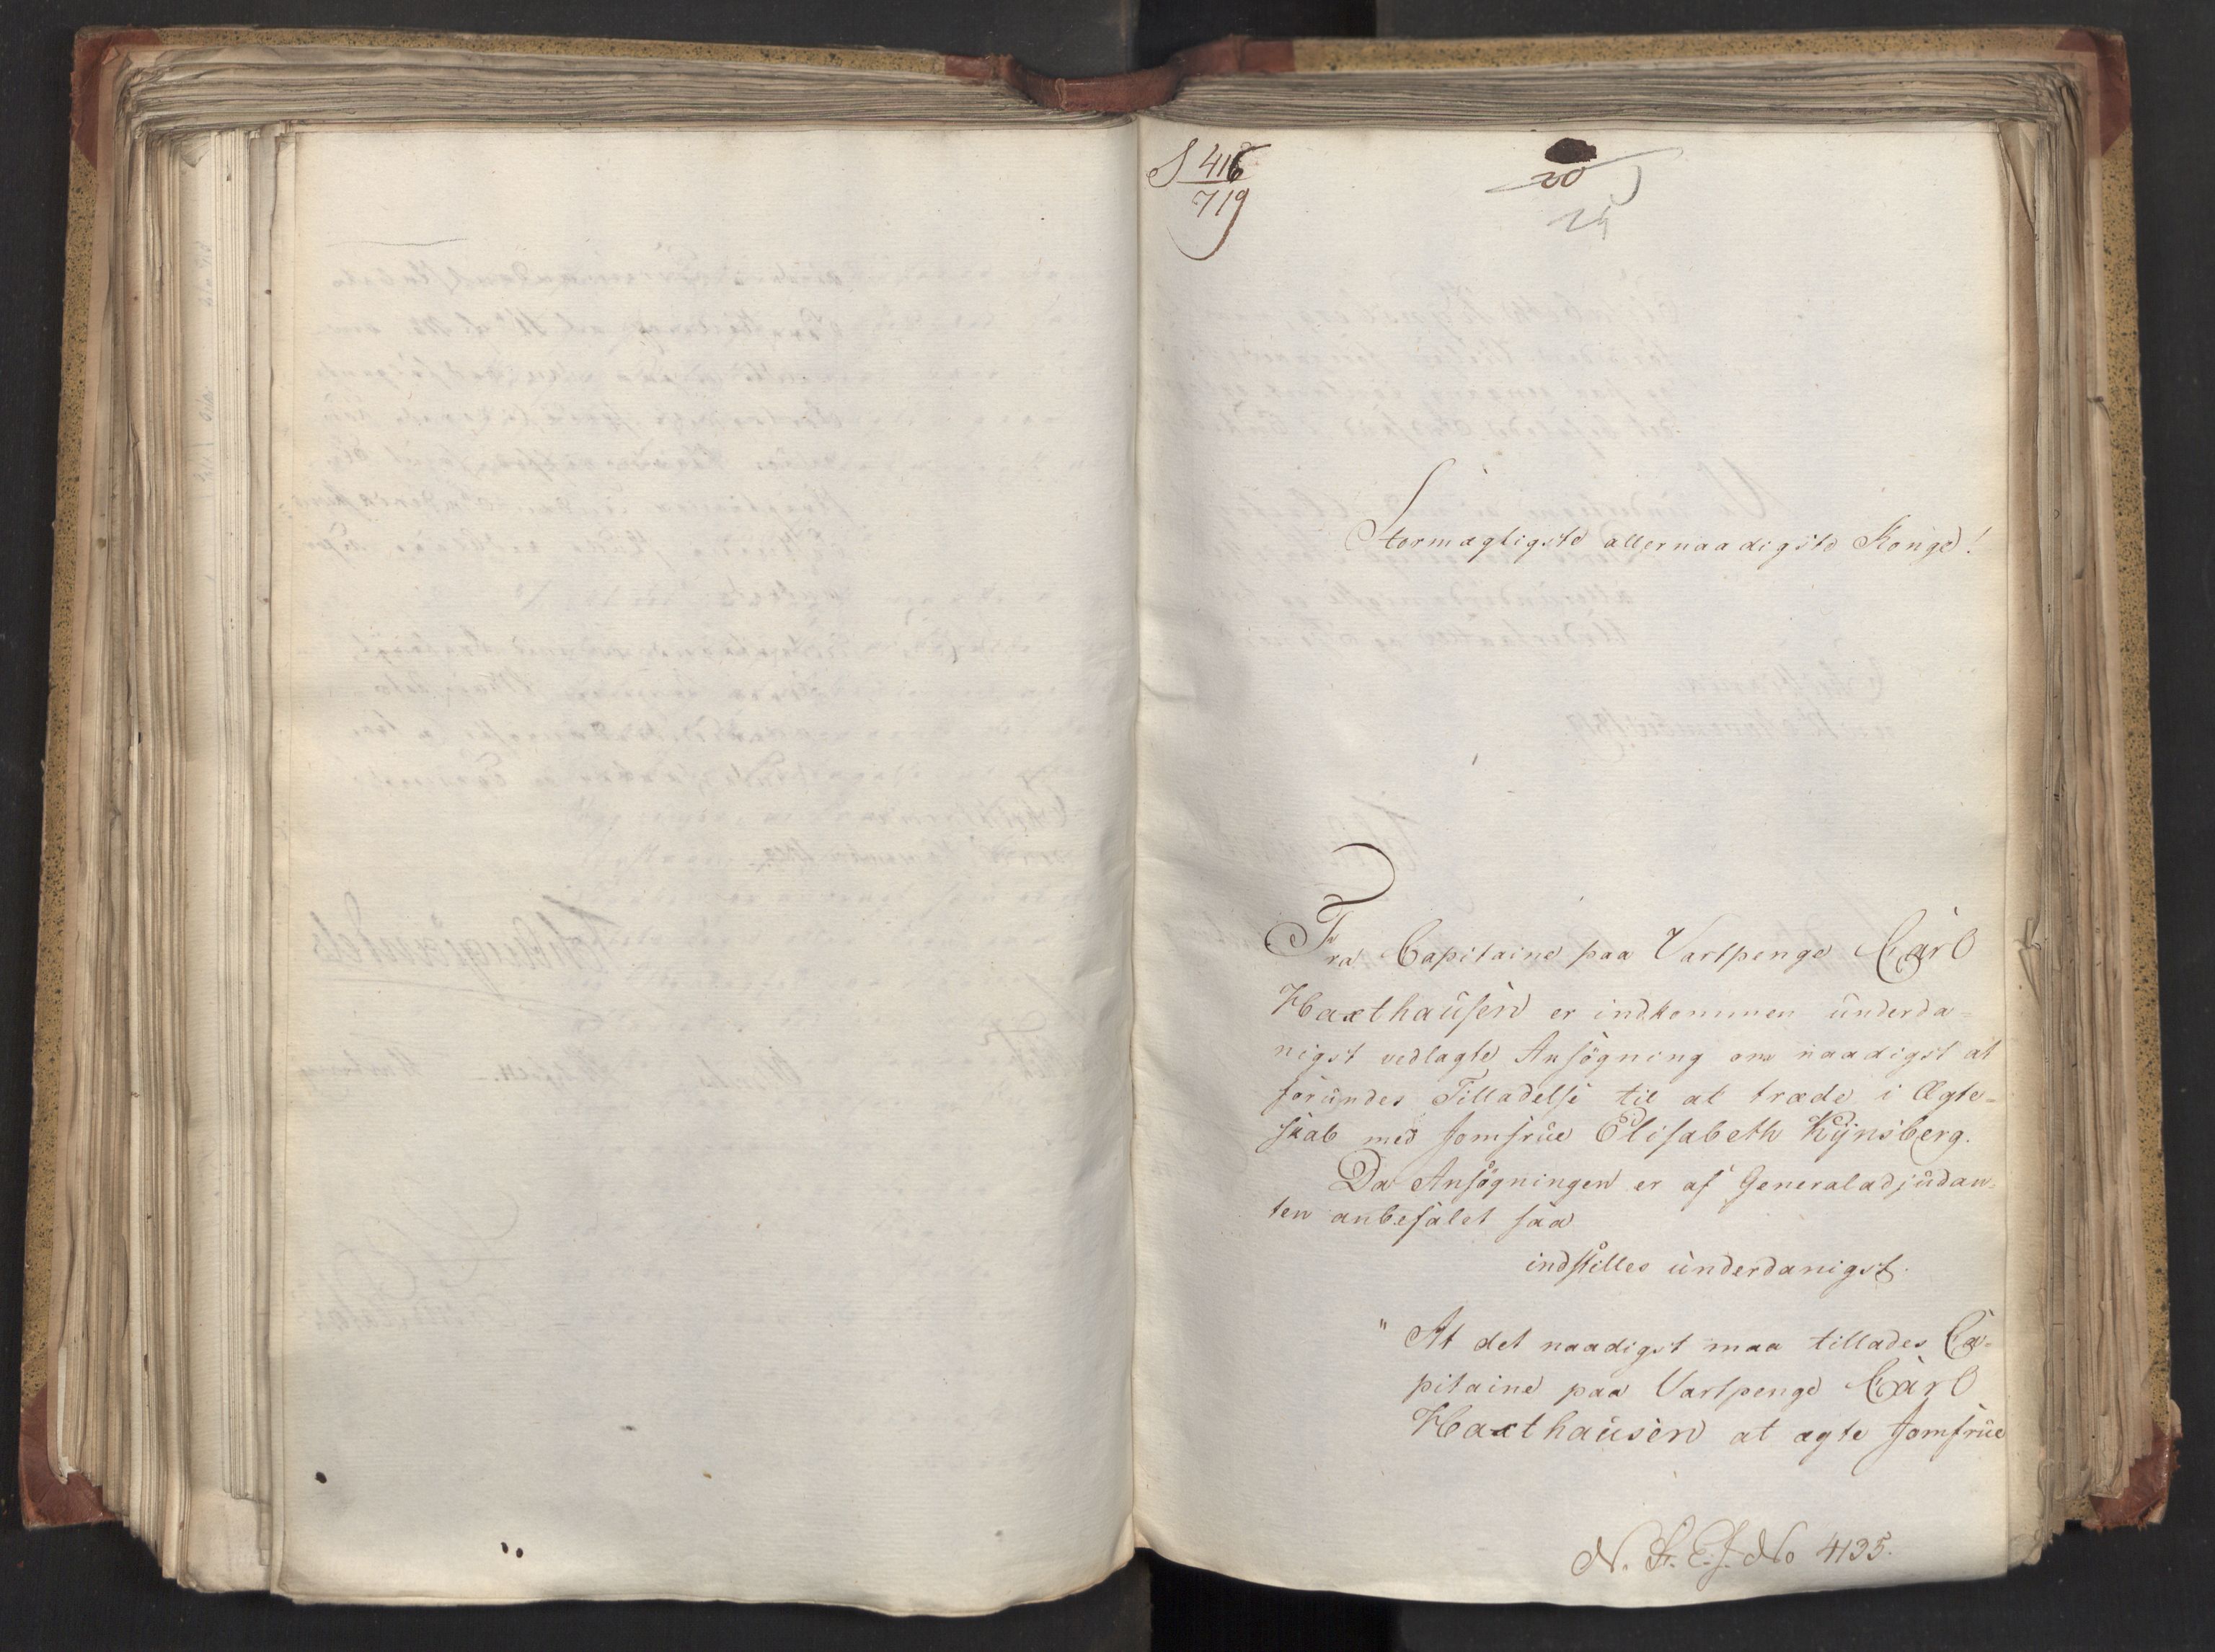 S 416
719
20
Stormægtigste allernaadigste Konge!
Fra Capitaine paa Vartpenge Carl
Haxthausen er indkommen underda=
nigst vedlagte Ansøgning om naadigst at
forundes Tilladelse til at træde i Ægte=
skab med Jomfrue Elisabeth Kÿnsberg.
Da Ansøgningen er af Generaladjudan=
ten anbefalet saa
indstilles underdanigst.
" At det naadigst maa tillades Ca=
pitaine paa Vartpenge Carl
Haxthausen at ægte Jomfrue
No 4135.